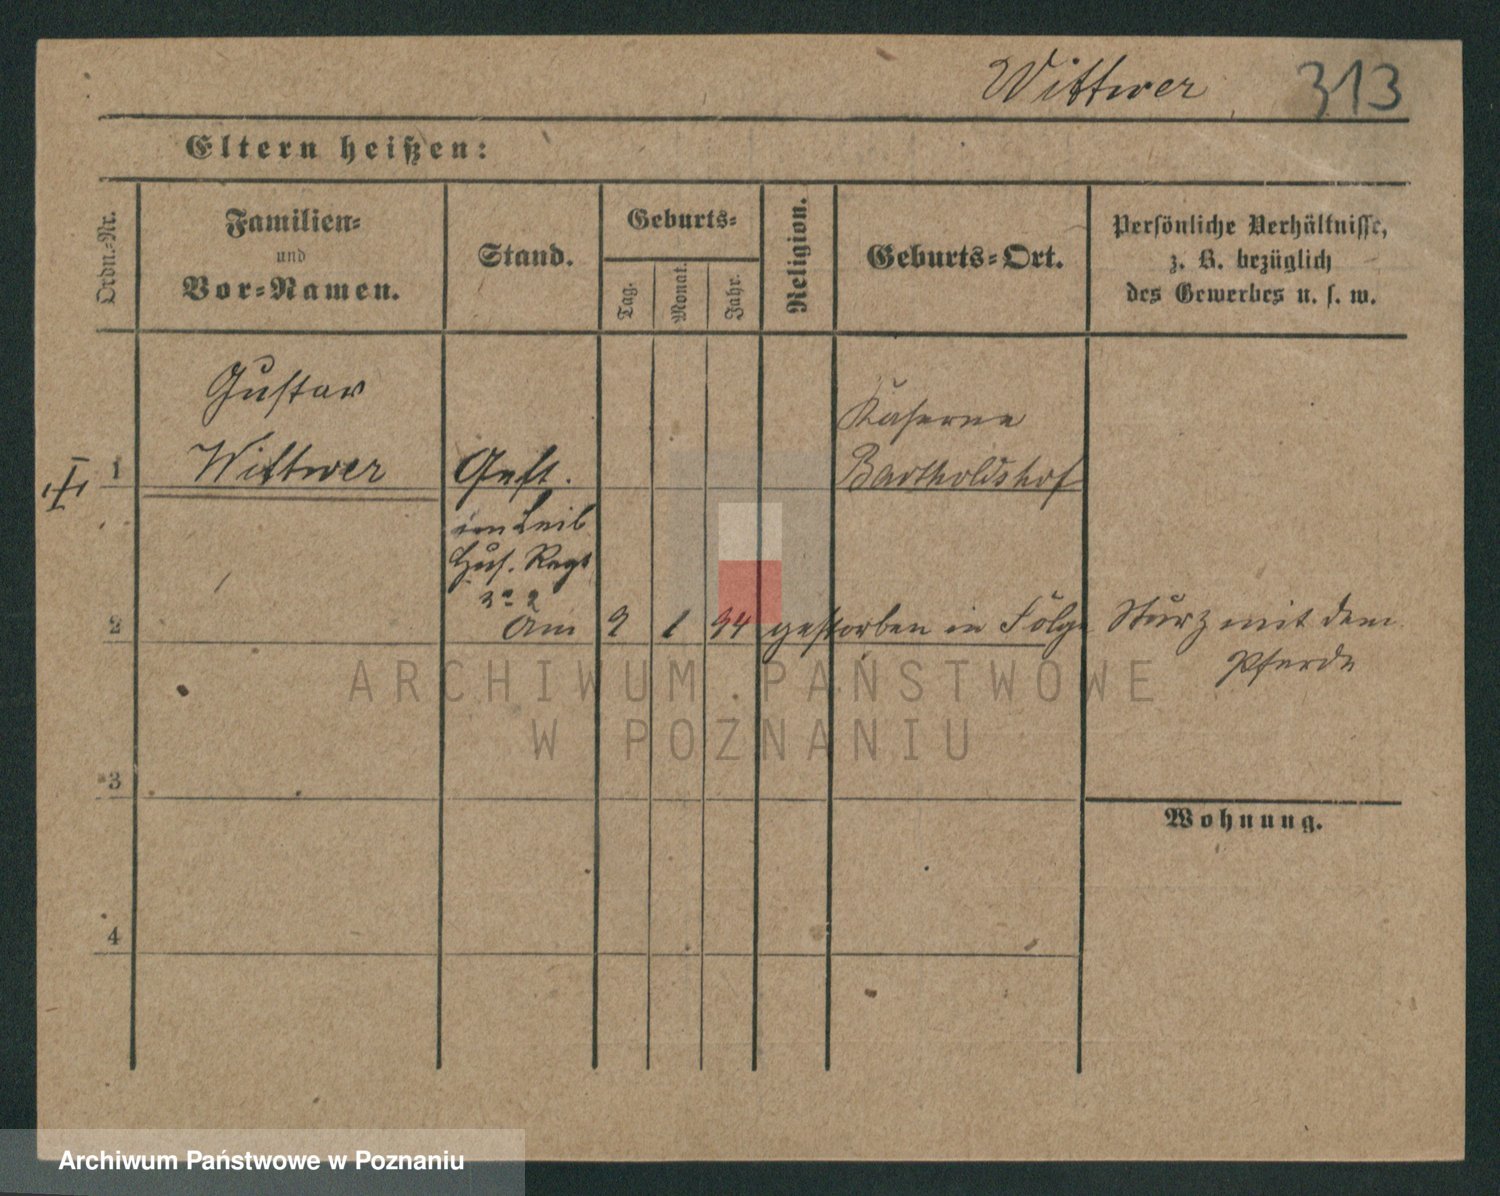 Wittwer 313
Eltern heißen:
Ordn.-Nr.
Familien-
und
Vor-Namen.
Stand.
Geburts-
Tag.
Monat.
Jahr.
Religion.
Geburts-Ort.
Persönliche Verhältnisse,
z. B. bezüglich
des Gewerbes u. s. w.
Gustav
Kaserne
1 Wittwer Gefr. Bartholdshof
im Leib
Hus. Regt
2
2 Am 9 1 94 gestorben in Folge Sturz mit dem
Pferde
ARCHIWUM PAŃSTWOWE
W POZNANIU
3
Wohnung.
4
Archiwum Państwowe w Poznaniu